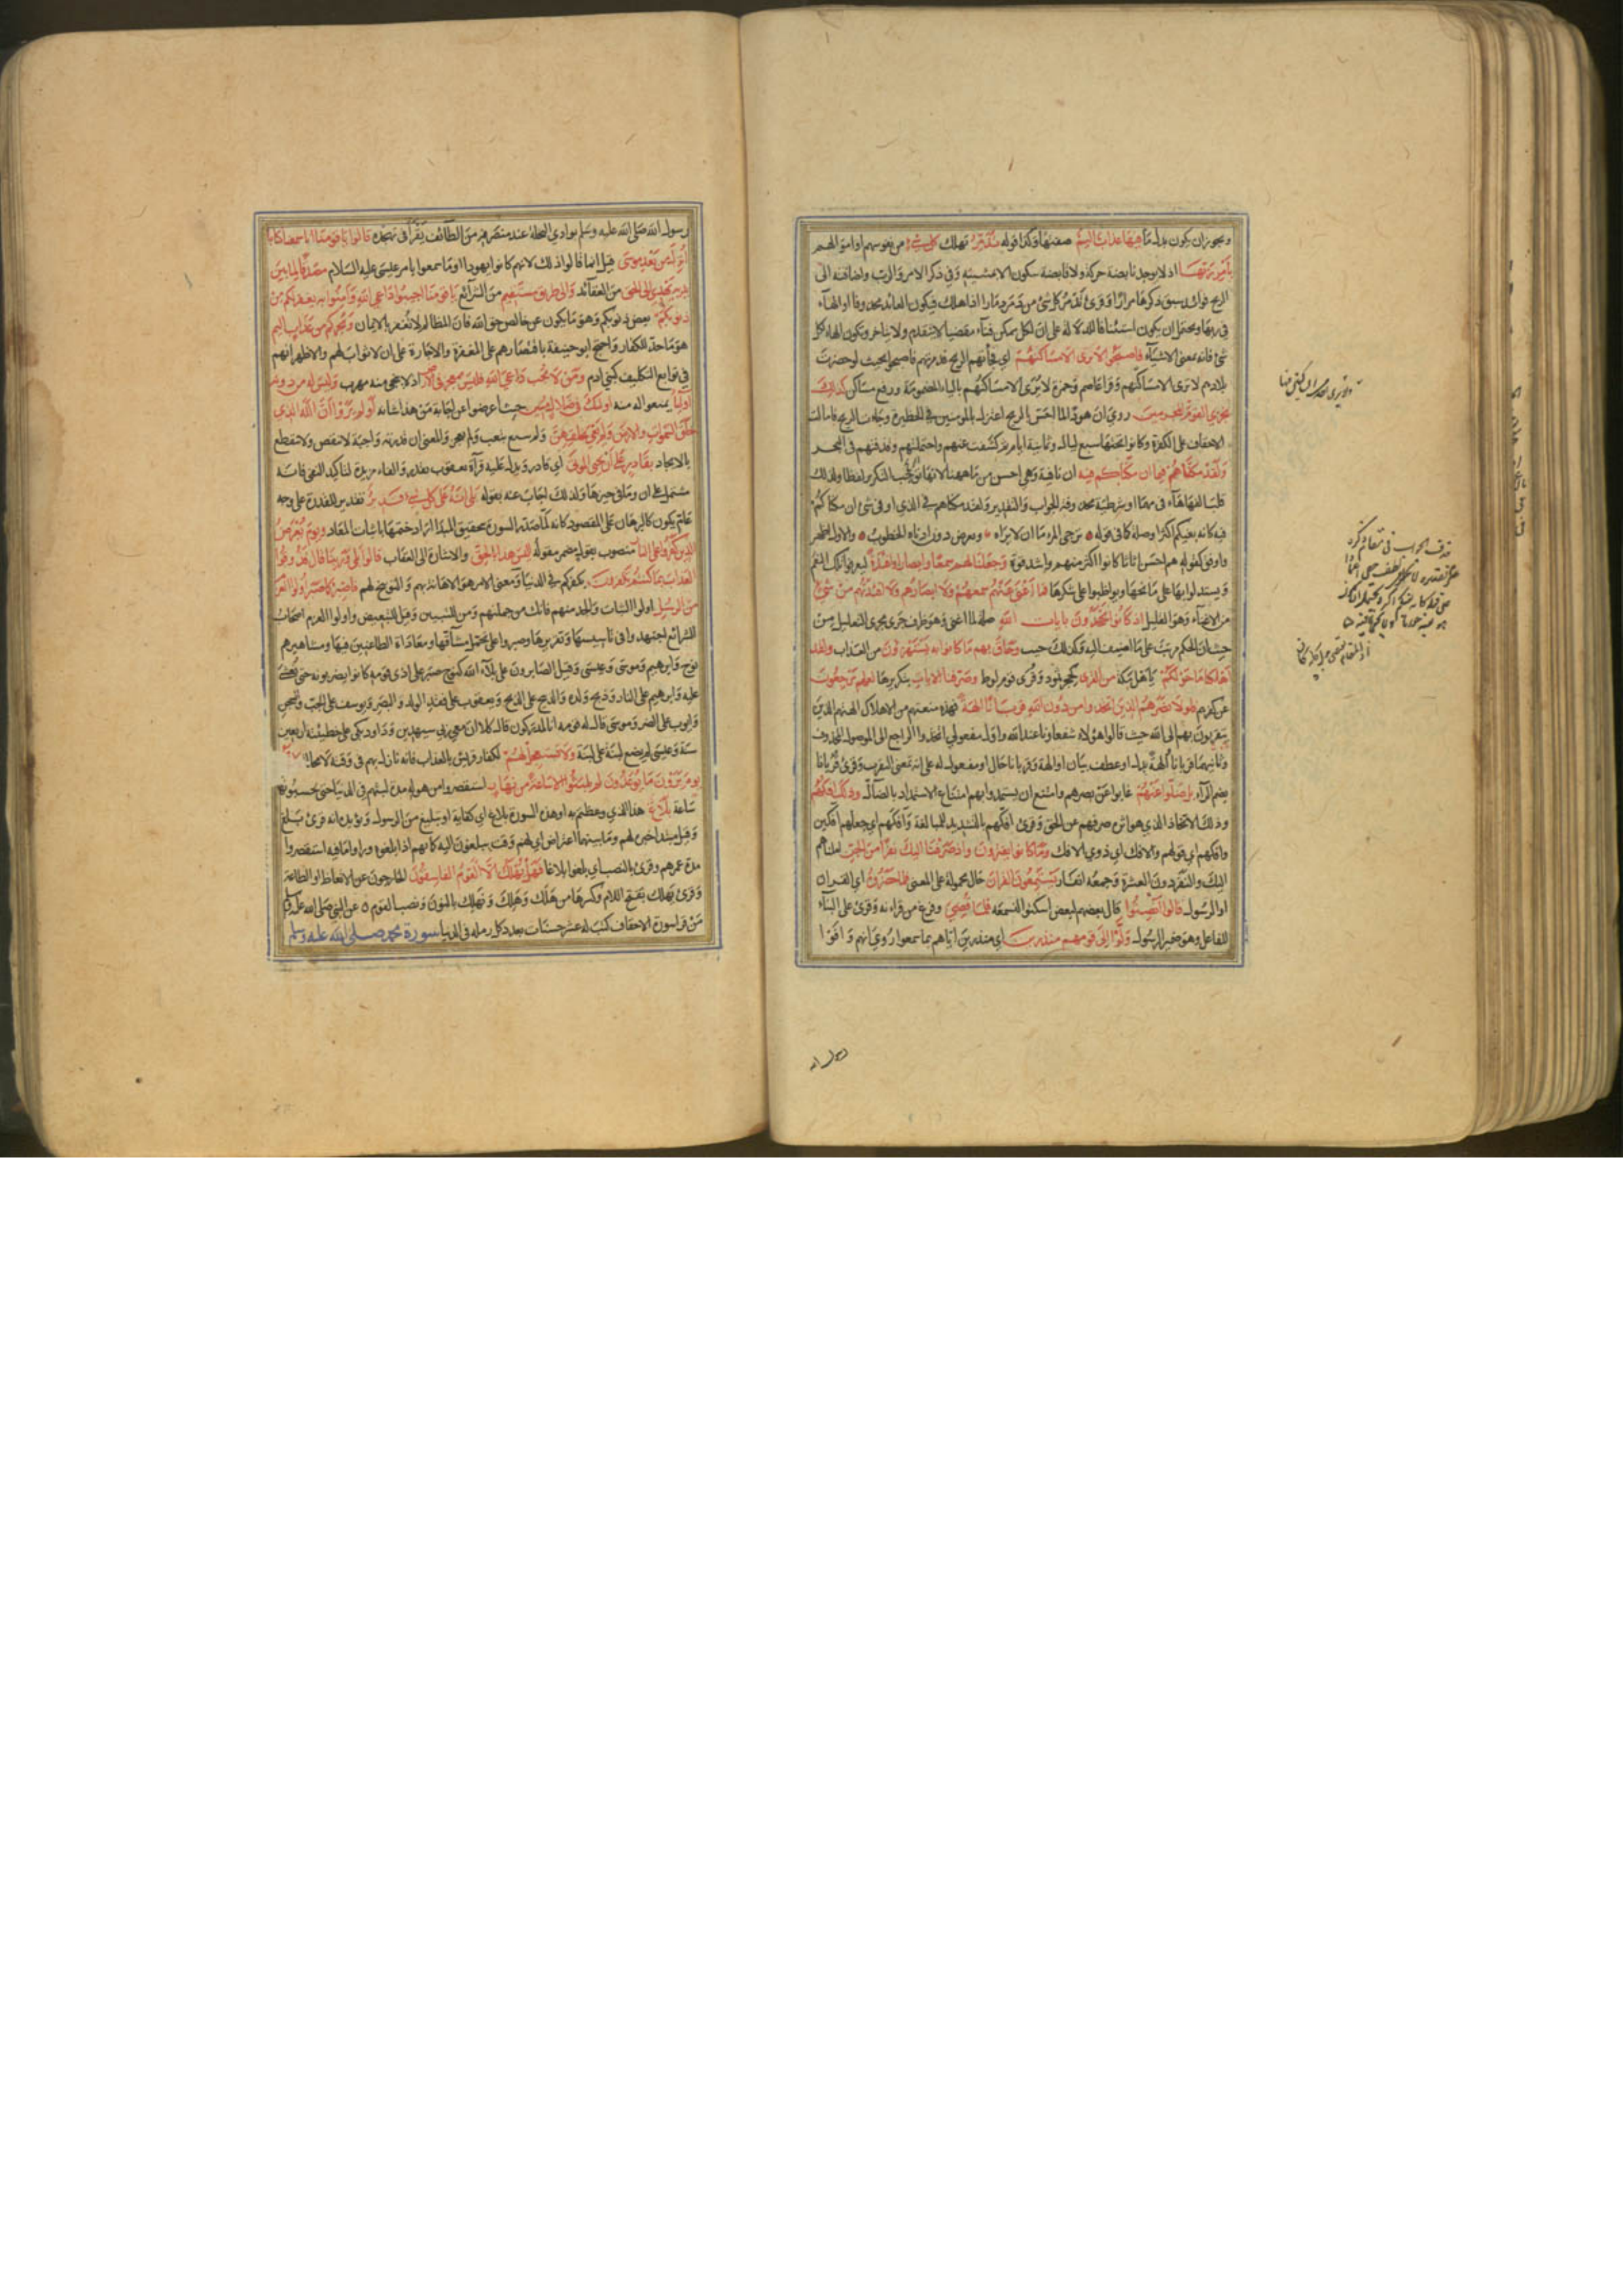 ويجوزان يكون بدل ما فيها عذاب اليم صفتها وكذا قوله تدمر تهلك كل شيء من نفوسهم واموالهم
بامر ربها اذ لا يوجد نابضة حركة ولا قابضة سكون الا بمشيته وفي ذكر الامر والرب واضافته الى
الريح فوائد سبق ذكرها مرارا وقرئ يدمر كل شئ من دمر دمارا اذا هلك فيكون العائد محذوفا او الهاء
في ربها ويحتمل ان يكون استئنافا للدلالة على ان لكل ممكن فناء مقضيا لا يتقدم ولا يتاخر وتكون الهاء لكل
شئ فانه بمعنى الاشياء فاصبحوا لا ترى الا مساكنهم اي فجأتهم الريح فدمرتهم فاصبحوا بحيث لو حضرت
بلادهم لا ترى الا مساكنهم وقرا عاصم وحمزة لا يرى الا مساكنهم بالياء المضمومة ورفع مساكن كذلك
نجزي القوم المجرمين روي ان هودا لما احس بالريح اعتزل بالمومنين في الحظيرة وجاءت الريح فامالت
الاحقاف على الكفرة وكانوا تحتها سبع ليال وثمانية ايام ثم كشفت عنهم واحتملتهم وقذفتهم في البحر
ولقد مكناهم فيما ان مكناكم فيه ان نافية وهي احسن من ما ههنا لانها توجب التكرير لفظا ولذلك
قلبت الفها هاء في مهما او شرطية محذوفة الجواب والتقدير ولقد مكناهم في الذي او في شئ ان مكناكم
فيه كان بغيكم اكثر او صلة كما في قوله يرجى المرء ما ان لا يراه ويعرض دون ادناه الخطوب والاول اظهر
واوفق كقوله هم احسن اثاثا كانوا اكثر منهم واشد قوة وجعلنا لهم سمعا وابصارا وافئدة ليعرفوا تلك النعم
ويستدلوا بها على مانحها ويواظبوا على شكرها فما اغنى عنهم سمعهم ولا ابصارهم ولا افئدتهم من شئ
من الاغناء وهو القليل اذ كانوا يجحدون بايات الله صلة لما اغنى وهو ظرف جرى مجرى التعليل من
حيث ان الحكم مرتب على ما اضيف اليه وكذلك حيث وحاق بهم ما كانوا به يستهزؤن من العذاب ولقد
اهلكنا ما حولكم يا اهل مكة من القرى كحجر ثمود وقرى قوم لوط وصرفنا الايات بتكريرها لعلهم يرجعون
عن كفرهم فلولا نصرهم الذين اتخذوا من دون الله قربانا الهة فهلا منعتهم من الاهلاك الهتهم الذين
يتقربون بهم الى الله حيث قالوا هؤلاء شفعاؤنا عند الله واول مفعولي اتخذوا الراجع الى الموصول المحذوف
وثانيهما قربانا والهة بدل او عطف بيان او الهة وقربانا حال او مفعول له على انه بمعنى التقرب وقرئ قربانا
بضم الراء بل ضلوا عنهم غابوا عن نصرهم وامتنع ان يستمدوا بهم امتناع الاستمداد بالضال وذلك افكهم
وذلك الاتخاذ الذي هو اثره صرفهم عن الحق وقرئ افكهم بالتشديد للمبالغة وآفكهم اي جعلهم آفكين
وافكهم اي قولهم والافك اي ذوي الافك وما كانوا يفترون واذ صرفنا اليك نفرا من الجن املناهم
اليك والنفر دون العشرة وجمعه انفار يستمعون القران حال محمولة على المعنى فلما حضروه اي القران
او الرسول قالوا انصتوا قال بعضهم لبعض اسكتوا لنسمعه فلما قضي وفرغ من قراءته وقرئ على البناء
للفاعل وهو ضمير الرسول ولوا الى قومهم منذرين اي منذرين اياهم بما سمعوا روي انهم وافوا
رسول الله
رسول الله صلى الله عليه وسلم بوادي النخلة عند منصرفه من الطائف يقرأ في تهجده قالوا يا قومنا انا سمعنا كتابا
انزل من بعد موسى قيل انما قالوا ذلك لانهم كانوا يهودا او ما سمعوا بامر عيسى عليه السلام مصدقا لما بين
يديه يهدي الى الحق من العقائد والى طريق مستقيم من الشرائع يا قومنا اجيبوا داعي الله وآمنوا به يغفر لكم من
ذنوبكم بعض ذنوبكم وهو ما يكون عن خالص حق الله فان المظالم لا تغفر بالايمان ويجركم من عذاب اليم
هو معد للكفار واحتج ابو حنيفة باقتصارهم على المغفرة والاجارة على ان لا ثواب لهم والاظهر انهم
في توابع التكليف كبني ادم ومن لا يجب داعي الله فليس بمعجز في الارض اذ لا ينجي منه مهرب وليس له من دونه
اولياء يمنعوا له منه اولئك في ضلال مبين حيث اعرضوا عن اجابة من هذا شانه اولم يروا ان الله الذي
خلق السموات والارض ولم يعي بخلقهن ولم يتعب ولم يعجز والمعنى ان قدرته واجبة لا تنقص ولا تنقطع
بالايجاد بقادر على ان يحيي الموتى اي قادر ويدل عليه قرآة يعقوب يقدر والباء مزيدة لتاكيد النفي فانه
مشتمل على ان وما في حيزها ولذلك اجاب عنه بقوله بلى انه على كل شيء قدير تقدير للقدرة على وجه
عام يكون كالبرهان على المقصود كانه لما صدر السورة بتحقيق المبدأ اراد ختمها باثبات المعاد ويوم يعرض
الذين كفروا على النار منصوب بقول مضمر مقوله اليس هذا بالحق والاشارة الى العذاب قالوا بلى وربنا قال فذوقوا
العذاب بما كنتم تكفرون بكفركم في الدنيا ومعنى الامر هو الاهانة بهم والتوبيخ لهم فاصبر كما صبر اولوا العزم
من الرسل اولوا الثبات والجد منهم فانك من جملتهم ومن للتبيين وقيل للتبعيض واولوا العزم اصحاب
الشرائع اجتهدوا في تاسيسها وتقريرها وصبروا على تحمل مشاقها ومعاداة الطاعنين فيها ومشاهيرهم
نوح وابرهيم وموسى وعيسى وقيل الصابرون على بلاء الله كنوح صبر على اذى قومه كانوا يضربونه حتى يغشى
عليه وابرهيم على النار وذبح ولده والذبيح على الذبح ويعقوب على فقد الولد والبصر ويوسف على الجب والسجن
وايوب على الضر وموسى قال له قومه انا لمدركون قال كلا ان معي ربي سيهدين وداود بكى على خطيئته اربعين
سنة وعيسى لم يضع لبنة على لبنة ولا تستعجل لهم لكفار قريش بالعذاب فانه نازل بهم في وقته لا محالة كانهم
يوم يرون ما يوعدون لم يلبثوا الا ساعة من نهار استقصروا من هوله مدة لبثهم في الدنيا حتى يحسبونها
ساعة بلاغ هذا الذي وعظتم به او هذه السورة بلاغ اي كفاية او تبليغ من الرسول ويؤيده انه قرئ بلغ
وقيل مبتدا خبره لهم وما بينهما اعتراض اي لهم وقت يبلغون اليه كانهم اذا بلغوه وراوا ما فيه استقصروا
مدة عمرهم وقرئ بالنصب اي بلغوا بلاغا فهل يهلك الا القوم الفاسقون الخارجون عن الاتعاظ او الطاعة
وقرئ يهلك بفتح اللام وكسرها من هلك وهلك ونهلك بالنون ونصب القوم عن النبي صلى الله عليه وسلم
من قرا سورة الاحقاف كتب له عشر حسنات بعدد كل رملة في الدنيا سورة محمد صلى الله عليه وسلم